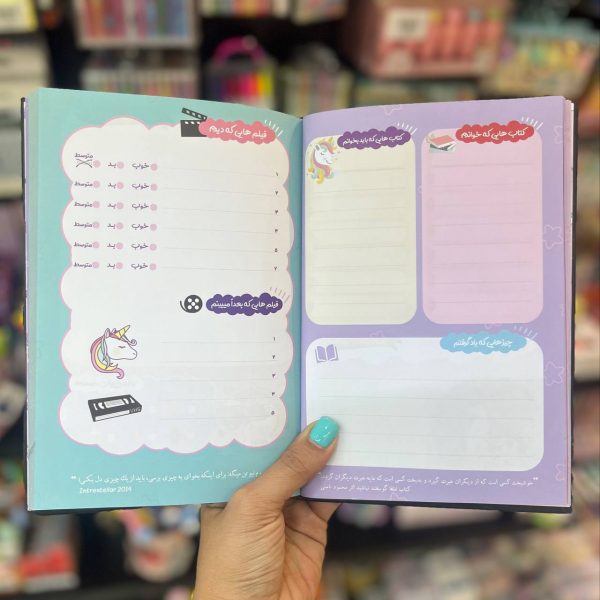 فیلم هایی که دیدم
۱ خوب بد متوسط
۲ خوب بد متوسط
۳ خوب بد متوسط
۴ خوب بد متوسط
۵ خوب بد متوسط
۷ خوب بد متوسط
فیلم هایی که بعداً میبینم
۱
۲
۳
۴
۵
نیوتن میگه برای اینکه بخوای به چیزی برسی، باید از یک چیزی دل بکنی!
Intrestellar 2014
کتاب هایی که خواندم
کتاب هایی که باید بخوانم
چیزهایی که یاد گرفتم
خوشبخت کسی است که از دیگران عبرت گیرد و بدبخت کسی است که مایه عبرت دیگران گردد.
کتاب لطفا گوسفند نباشید اثر محمود نامنی